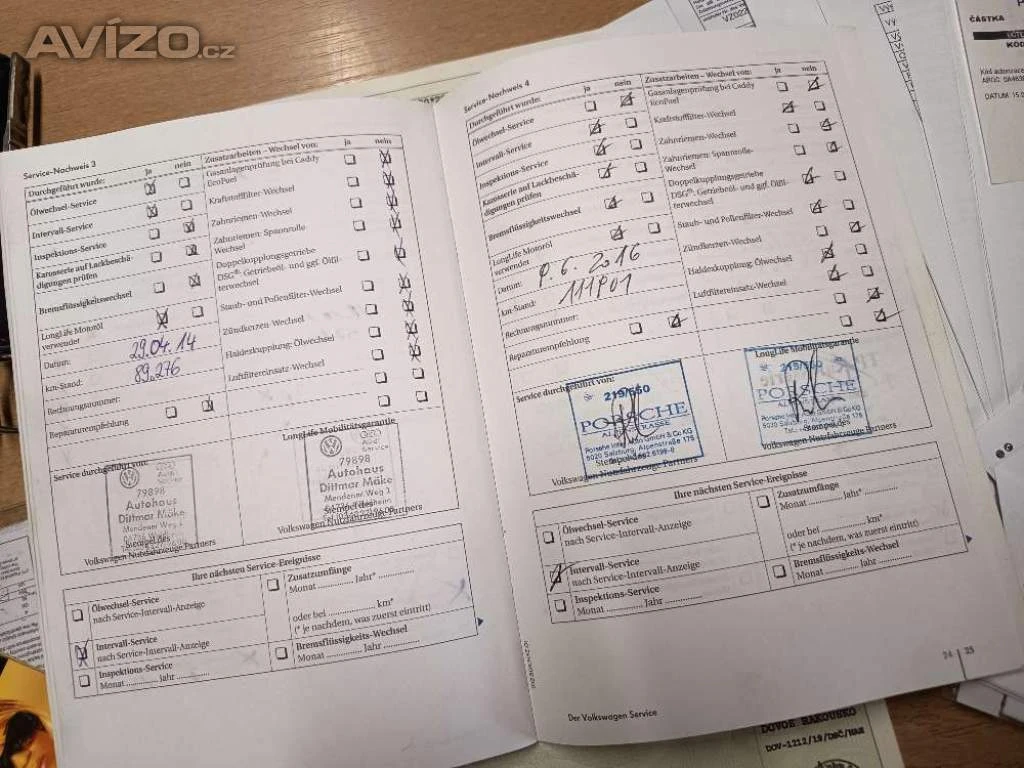 AVÍZO.cz
Service-Nachweis 3
Durchgeführt wurde:
ja
nein
Ölwechsel-Service
Intervall-Service
Inspektions-Service
Karosserie auf Lackbeschä-
digungen prüfen
Bremsflüssigkeitswechsel
LongLife Motoröl
verwendet
Datum:
29.04.14
km-Stand:
89.276
Rechnungsnummer:
Reparaturempfehlung
Zusatzarbeiten – Wechsel von:
ja
nein
Gasanlagenprüfung bei Caddy
EcoFuel
Kraftstofffilter-Wechsel
Zahnriemen-Wechsel
Zahnriemen: Spannrolle
Wechsel
Doppelkupplungsgetriebe
DSG®: Getriebeöl- und ggf. Ölfil-
terwechsel
Staub- und Pollenfilter-Wechsel
Zündkerzen-Wechsel
Haldexkupplung: Ölwechsel
Luftfiltereinsatz-Wechsel
Service durchgeführt von:
79898
Autohaus
Dittmar Mäke
Mendener Weg
Stempel des
Volkswagen Nutzfahrzeuge Partners
LongLife Mobilitätsgarantie
79898
Autohaus
Dittmar Mäke
Mendener Weg
Stempel des
Volkswagen Nutzfahrzeuge Partners
Ihre nächsten Service-Ereignisse
Ölwechsel-Service
nach Service-Intervall-Anzeige
Intervall-Service
nach Service-Intervall-Anzeige
Inspektions-Service
Monat ............ Jahr ............
Zusatzumfänge
Monat ............ Jahr* ............
oder bei ............ km*
(* je nachdem, was zuerst eintritt)
Bremsflüssigkeits-Wechsel
Monat ............ Jahr ............
Service-Nachweis 4
Durchgeführt wurde:
ja
nein
Ölwechsel-Service
Intervall-Service
Inspektions-Service
Karosserie auf Lackbeschä-
digungen prüfen
Bremsflüssigkeitswechsel
LongLife Motoröl
verwendet
Datum:
6. 2016
km-Stand:
Rechnungsnummer:
Reparaturempfehlung
Zusatzarbeiten – Wechsel von:
ja
nein
Gasanlagenprüfung bei Caddy
EcoFuel
Kraftstofffilter-Wechsel
Zahnriemen-Wechsel
Zahnriemen: Spannrolle-
Wechsel
Doppelkupplungsgetriebe
DSG®: Getriebeöl- und ggf. Ölfil-
terwechsel
Staub- und Pollenfilter-Wechsel
Zündkerzen-Wechsel
Haldexkupplung: Ölwechsel
Luftfiltereinsatz-Wechsel
Service durchgeführt von:
219/550
PORSCHE
5020 Salzburg, Alpenstraße 175
Stempel des
Volkswagen Nutzfahrzeuge Partners
LongLife Mobilitätsgarantie
219/550
PORSCHE
5020 Salzburg, Alpenstraße 175
Stempel des
Volkswagen Nutzfahrzeuge Partners
Ihre nächsten Service-Ereignisse
Ölwechsel-Service
nach Service-Intervall-Anzeige
Intervall-Service
nach Service-Intervall-Anzeige
Inspektions-Service
Monat ............ Jahr ............
Zusatzumfänge
Monat ............ Jahr* ............
oder bei ............ km*
(* je nachdem, was zuerst eintritt)
Bremsflüssigkeits-Wechsel
Monat ............ Jahr ............
24 | 25
Der Volkswagen Service
ČÁSTKA
DATUM: 15.0
DOVOZ RAKOUSKO